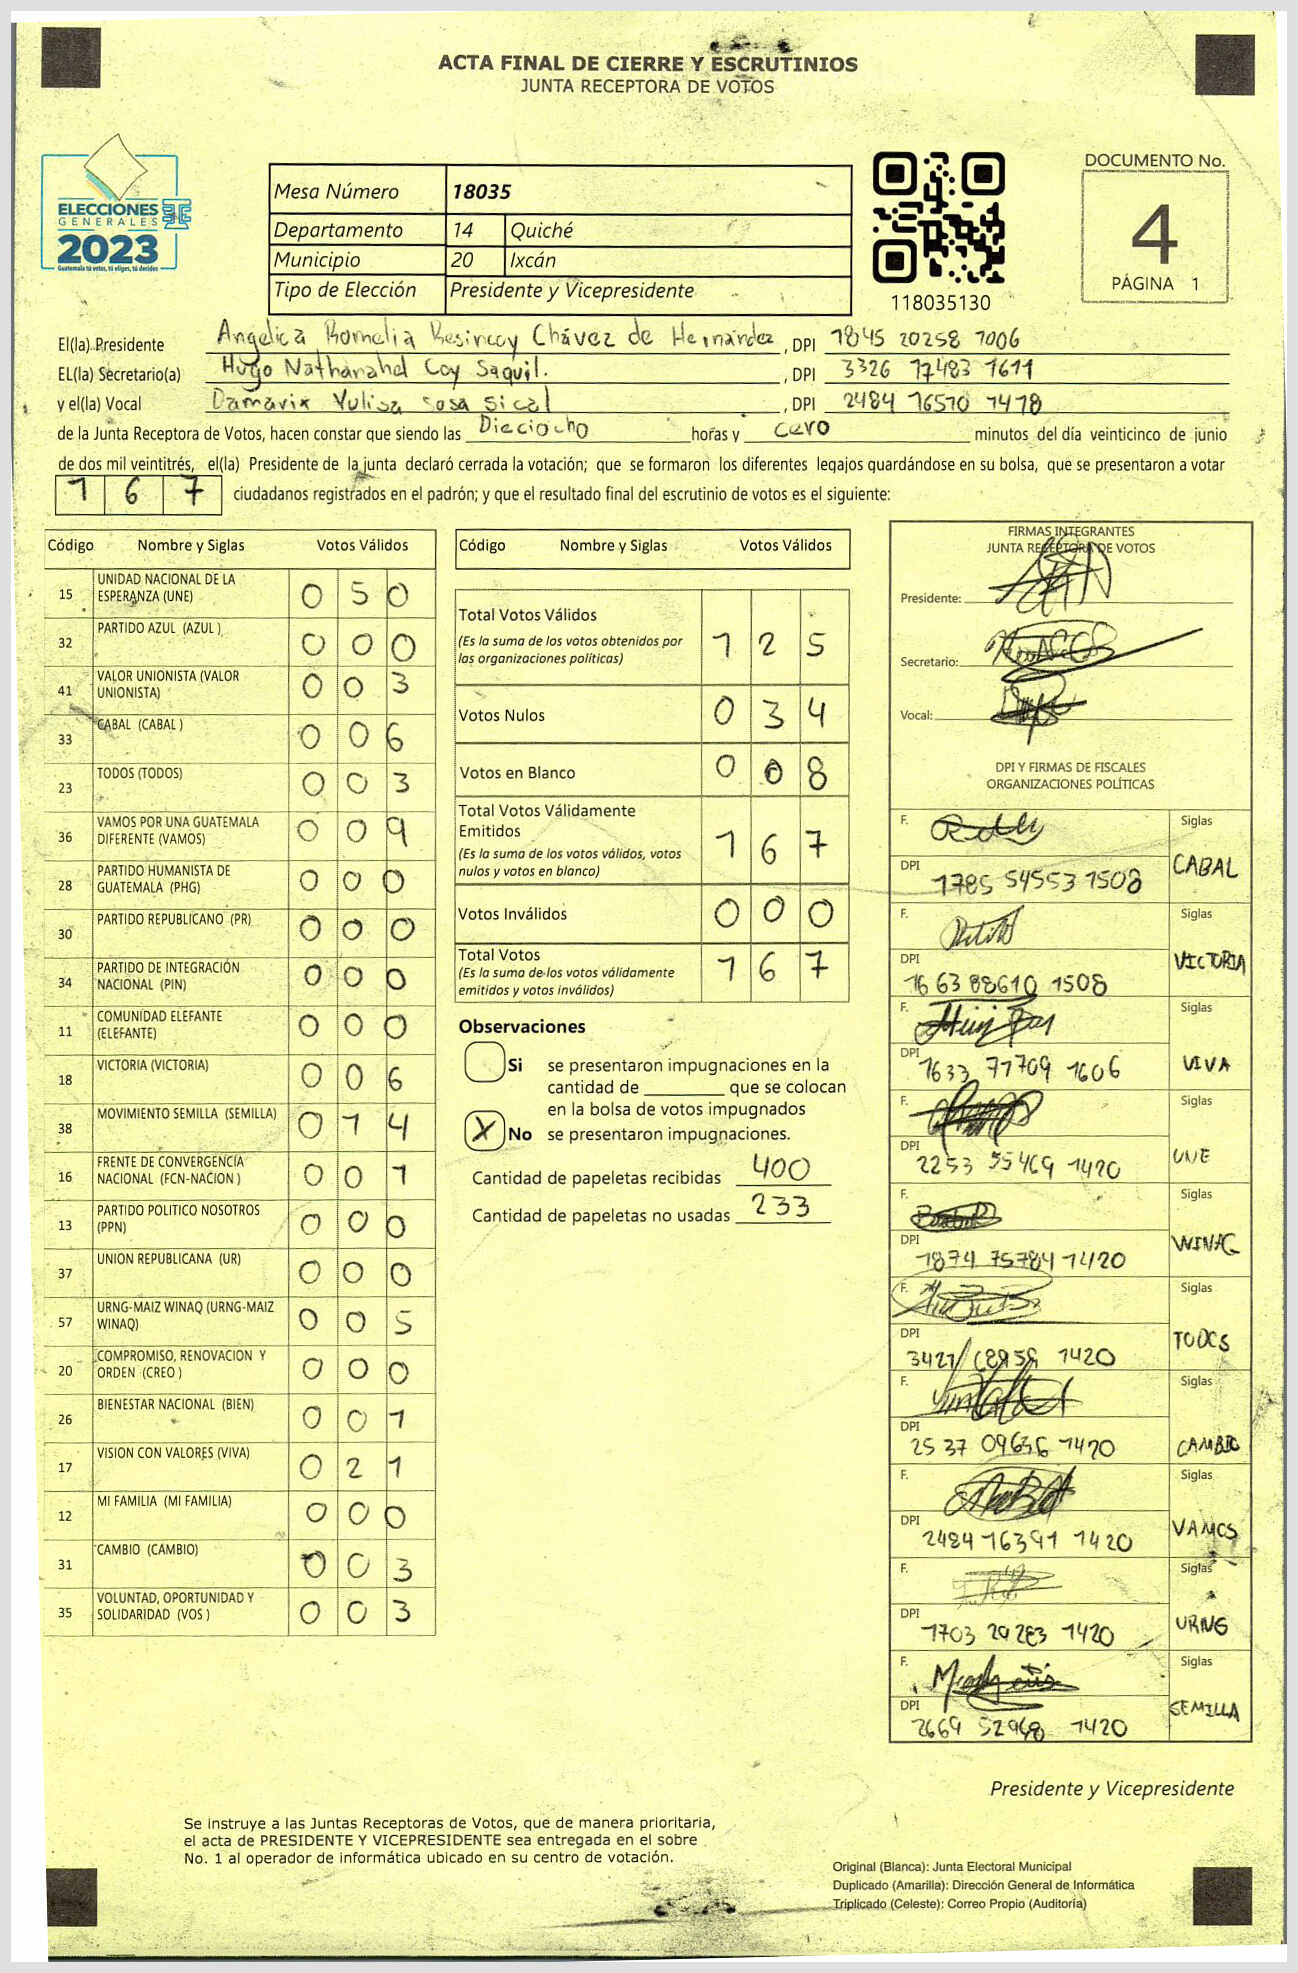 ACTA FINAL DE CIERRE Y ESCRUTINIOS
JUNTA RECEPTORA DE VOTOS
ELECCIONES
GENERALES
2023
Guatemala tú votas, tú eliges, tú decides
Mesa Número 18035
Departamento 14 Quiché
Municipio 20 Ixcán
Tipo de Elección Presidente y Vicepresidente
118035130
DOCUMENTO No.
4
PÁGINA 1
El(la) Presidente Angelica Romelia Chávez de Hernández, DPI 1845 20258 1006
EL(la) Secretario(a) Hugo Nathanahel Coy Saquil. , DPI 3326 17483 1611
y el(la) Vocal Damarix Yulisa Sosa Sical , DPI 2484 16570 1418
de la Junta Receptora de Votos, hacen constar que siendo las Dieciocho horas y cero minutos del día veinticinco de junio
de dos mil veintitrés, el(la) Presidente de la junta declaró cerrada la votación; que se formaron los diferentes legajos guardándose en su bolsa, que se presentaron a votar
167 ciudadanos registrados en el padrón; y que el resultado final del escrutinio de votos es el siguiente:
Código Nombre y Siglas Votos Válidos
15 UNIDAD NACIONAL DE LA ESPERANZA (UNE) 0 5 0
32 PARTIDO AZUL (AZUL ) 0 0 0
41 VALOR UNIONISTA (VALOR UNIONISTA) 0 0 3
33 CABAL (CABAL ) 0 0 6
23 TODOS (TODOS) 0 0 3
36 VAMOS POR UNA GUATEMALA DIFERENTE (VAMOS) 0 0 9
28 PARTIDO HUMANISTA DE GUATEMALA (PHG) 0 0 0
30 PARTIDO REPUBLICANO (PR) 0 0 0
34 PARTIDO DE INTEGRACIÓN NACIONAL (PIN) 0 0 0
11 COMUNIDAD ELEFANTE (ELEFANTE) 0 0 0
18 VICTORIA (VICTORIA) 0 0 6
38 MOVIMIENTO SEMILLA (SEMILLA) 0 1 4
16 FRENTE DE CONVERGENCIA NACIONAL (FCN-NACION ) 0 0 1
13 PARTIDO POLITICO NOSOTROS (PPN) 0 0 0
37 UNION REPUBLICANA (UR) 0 0 0
57 URNG-MAIZ WINAQ (URNG-MAIZ WINAQ) 0 0 5
20 COMPROMISO, RENOVACION Y ORDEN (CREO ) 0 0 0
26 BIENESTAR NACIONAL (BIEN) 0 0 1
17 VISION CON VALORES (VIVA) 0 2 1
12 MI FAMILIA (MI FAMILIA) 0 0 0
31 CAMBIO (CAMBIO) 0 0 3
35 VOLUNTAD, OPORTUNIDAD Y SOLIDARIDAD (VOS ) 0 0 3
Código Nombre y Siglas Votos Válidos
Total Votos Válidos 1 2 5
(Es la suma de los votos obtenidos por
las organizaciones políticas)
Votos Nulos 0 3 4
Votos en Blanco 0 0 8
Total Votos Válidamente
Emitidos 1 6 7
(Es la suma de los votos válidos, votos
nulos y votos en blanco)
Votos Inválidos 0 0 0
Total Votos 1 6 7
(Es la suma de los votos válidamente
emitidos y votos inválidos)
Observaciones
Si se presentaron impugnaciones en la
cantidad de ________ que se colocan
en la bolsa de votos impugnados
X No se presentaron impugnaciones.
Cantidad de papeletas recibidas 400
Cantidad de papeletas no usadas 233
FIRMAS INTEGRANTES
JUNTA RECEPTORA DE VOTOS
Presidente:
Secretario:
Vocal:
DPI Y FIRMAS DE FISCALES
ORGANIZACIONES POLÍTICAS
F. Siglas
DPI 1785 54553 1508 CABAL
F. Siglas
DPI 1663 88610 1508 VICTORIA
F. Siglas
DPI 1633 77709 1606 VIVA
F. Siglas
DPI 2253 55469 1420 UNE
F. Siglas
DPI 1874 75784 1420 WINAC
F. Siglas
DPI 3421 1420 TODOS
F. Siglas
DPI 2537 09636 1420 CAMBIO
F. Siglas
DPI 2484 16391 1420 VAMOS
F. Siglas
DPI 1703 29283 1420 URNG
F. Siglas
DPI 2669 52968 1420 SEMILLA
Presidente y Vicepresidente
Se instruye a las Juntas Receptoras de Votos, que de manera prioritaria,
el acta de PRESIDENTE Y VICEPRESIDENTE sea entregada en el sobre
No. 1 al operador de informática ubicado en su centro de votación.
Original (Blanca): Junta Electoral Municipal
Duplicado (Amarilla): Dirección General de Informática
Triplicado (Celeste): Correo Propio (Auditoría)